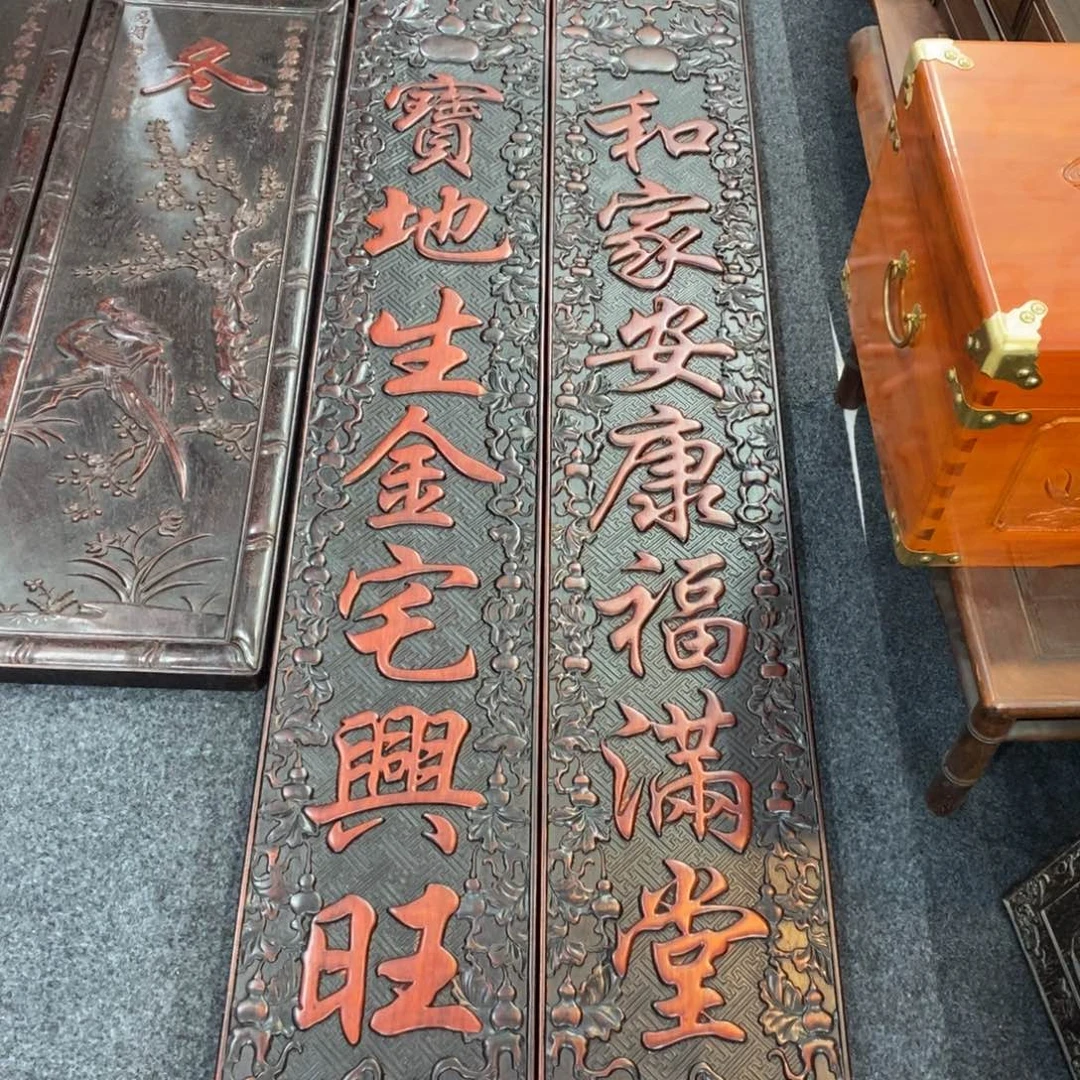 和家安康福滿堂
寶地生金宅興旺
冬